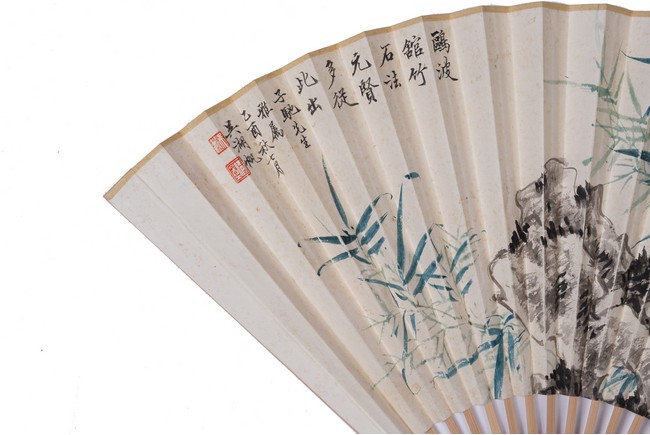 鷗波
館竹
石法
元賢
多從
此出
子馳先生
雅属
乙酉秋七月
吳湖帆